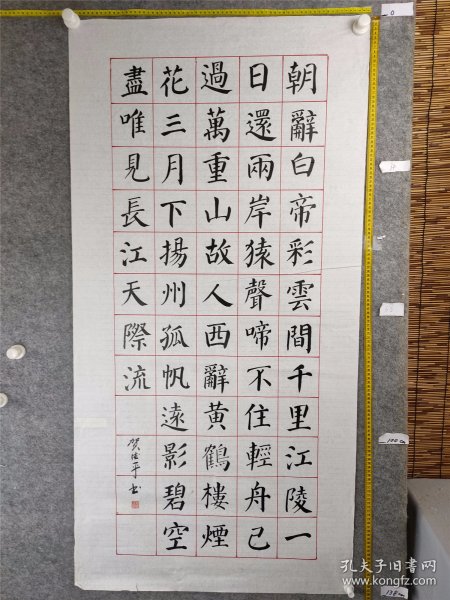 朝辭白帝彩雲間千里江陵一
日還兩岸猿聲啼不住輕舟已
過萬重山故人西辭黄鶴樓煙
花三月下揚州孤帆遠影碧空
盡唯見長江天際流
平书
0
100cm
孔夫子旧书网
www.kongfz.com